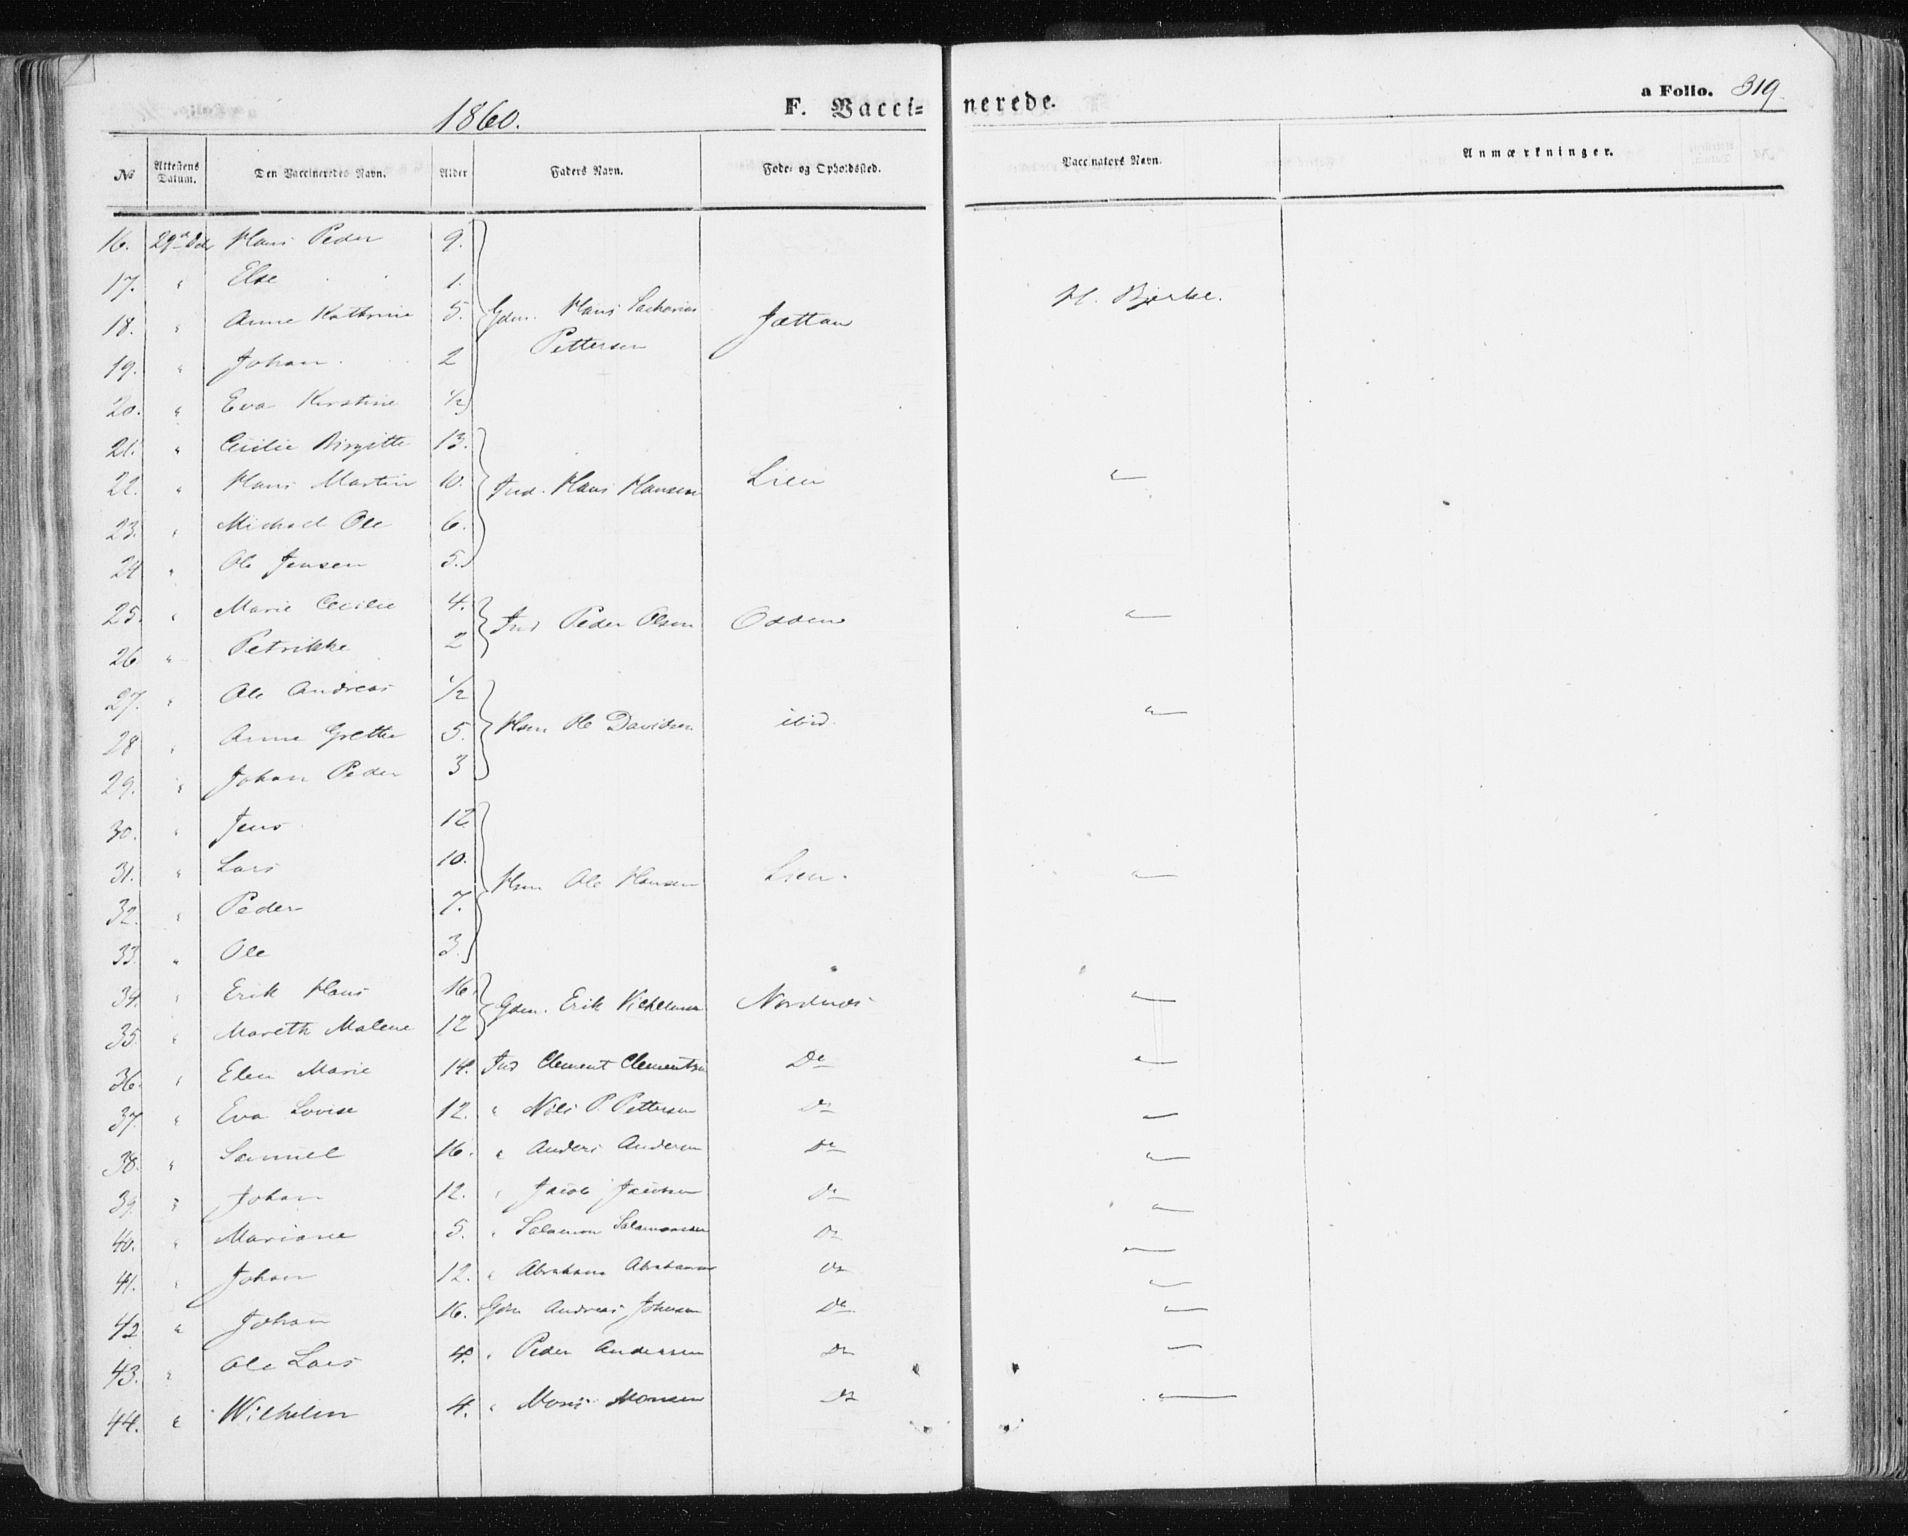 1860.
F. Vacci= nerede. a Folio. 319.
No Attestens Datum. Den Vaccineredes Navn. Alder Faders Navn. Føde- og Opholdssted. Vaccinators Navn. Anmærkninger.
16. 29de Hans Peder 9.
17. " Else 1.
18. " Anne Kathrine 5. Gdm. Hans Zacharias Jættan H. Bjerke.
19. " Johan 2 Pettersen
20. " Eva Kirstine 1/2
21. " Cecilie Birgitte 13.
22. " Hans Martin 10. Ind. Hans Hansen Lien "—
23. " Michael Ole 6.
24 " Ole Jensen 5.
25. " Marie Cecilie 4. Ind Peder Olsen Odden "—
26 " Petrikke 2
27. " Ole Andreas 1/2
28 " Anne Grethe 5. Hsm Ole Davidsen ibid. "—
29. " Johan Peder 3
30. " Jens 12
31. " Lars 10. Hsm Ole Hansen Lien. "—
32. " Peder 7.
33. " Ole 3.
34. " Erik Hans 16. Gdm. Erik Vilhelmsen Nordnes "—
35. " Mareth Malene 12
36. " Elen Marie 14. Ind Clement Clementsen Do "—
37. " Eva Lovise 12. " Nils P. Pettersen Do "—
38. " Samuel 16. " Anders Andersen Do "—
39. " Johan 12. " Jacob Jacobsen Do "—
40. " Mariane 5. " Salamon Salamonsen Do "—
41. " Johan 12. " Abraham Abrahamsen Do "—
42 " Johan 16. Gdm Andreas Johnsen Do "—
43. " Ole Lars 4. " Peder Andersen Do "—
44. " Wilhelm 4. " Mons Monsen Do "—